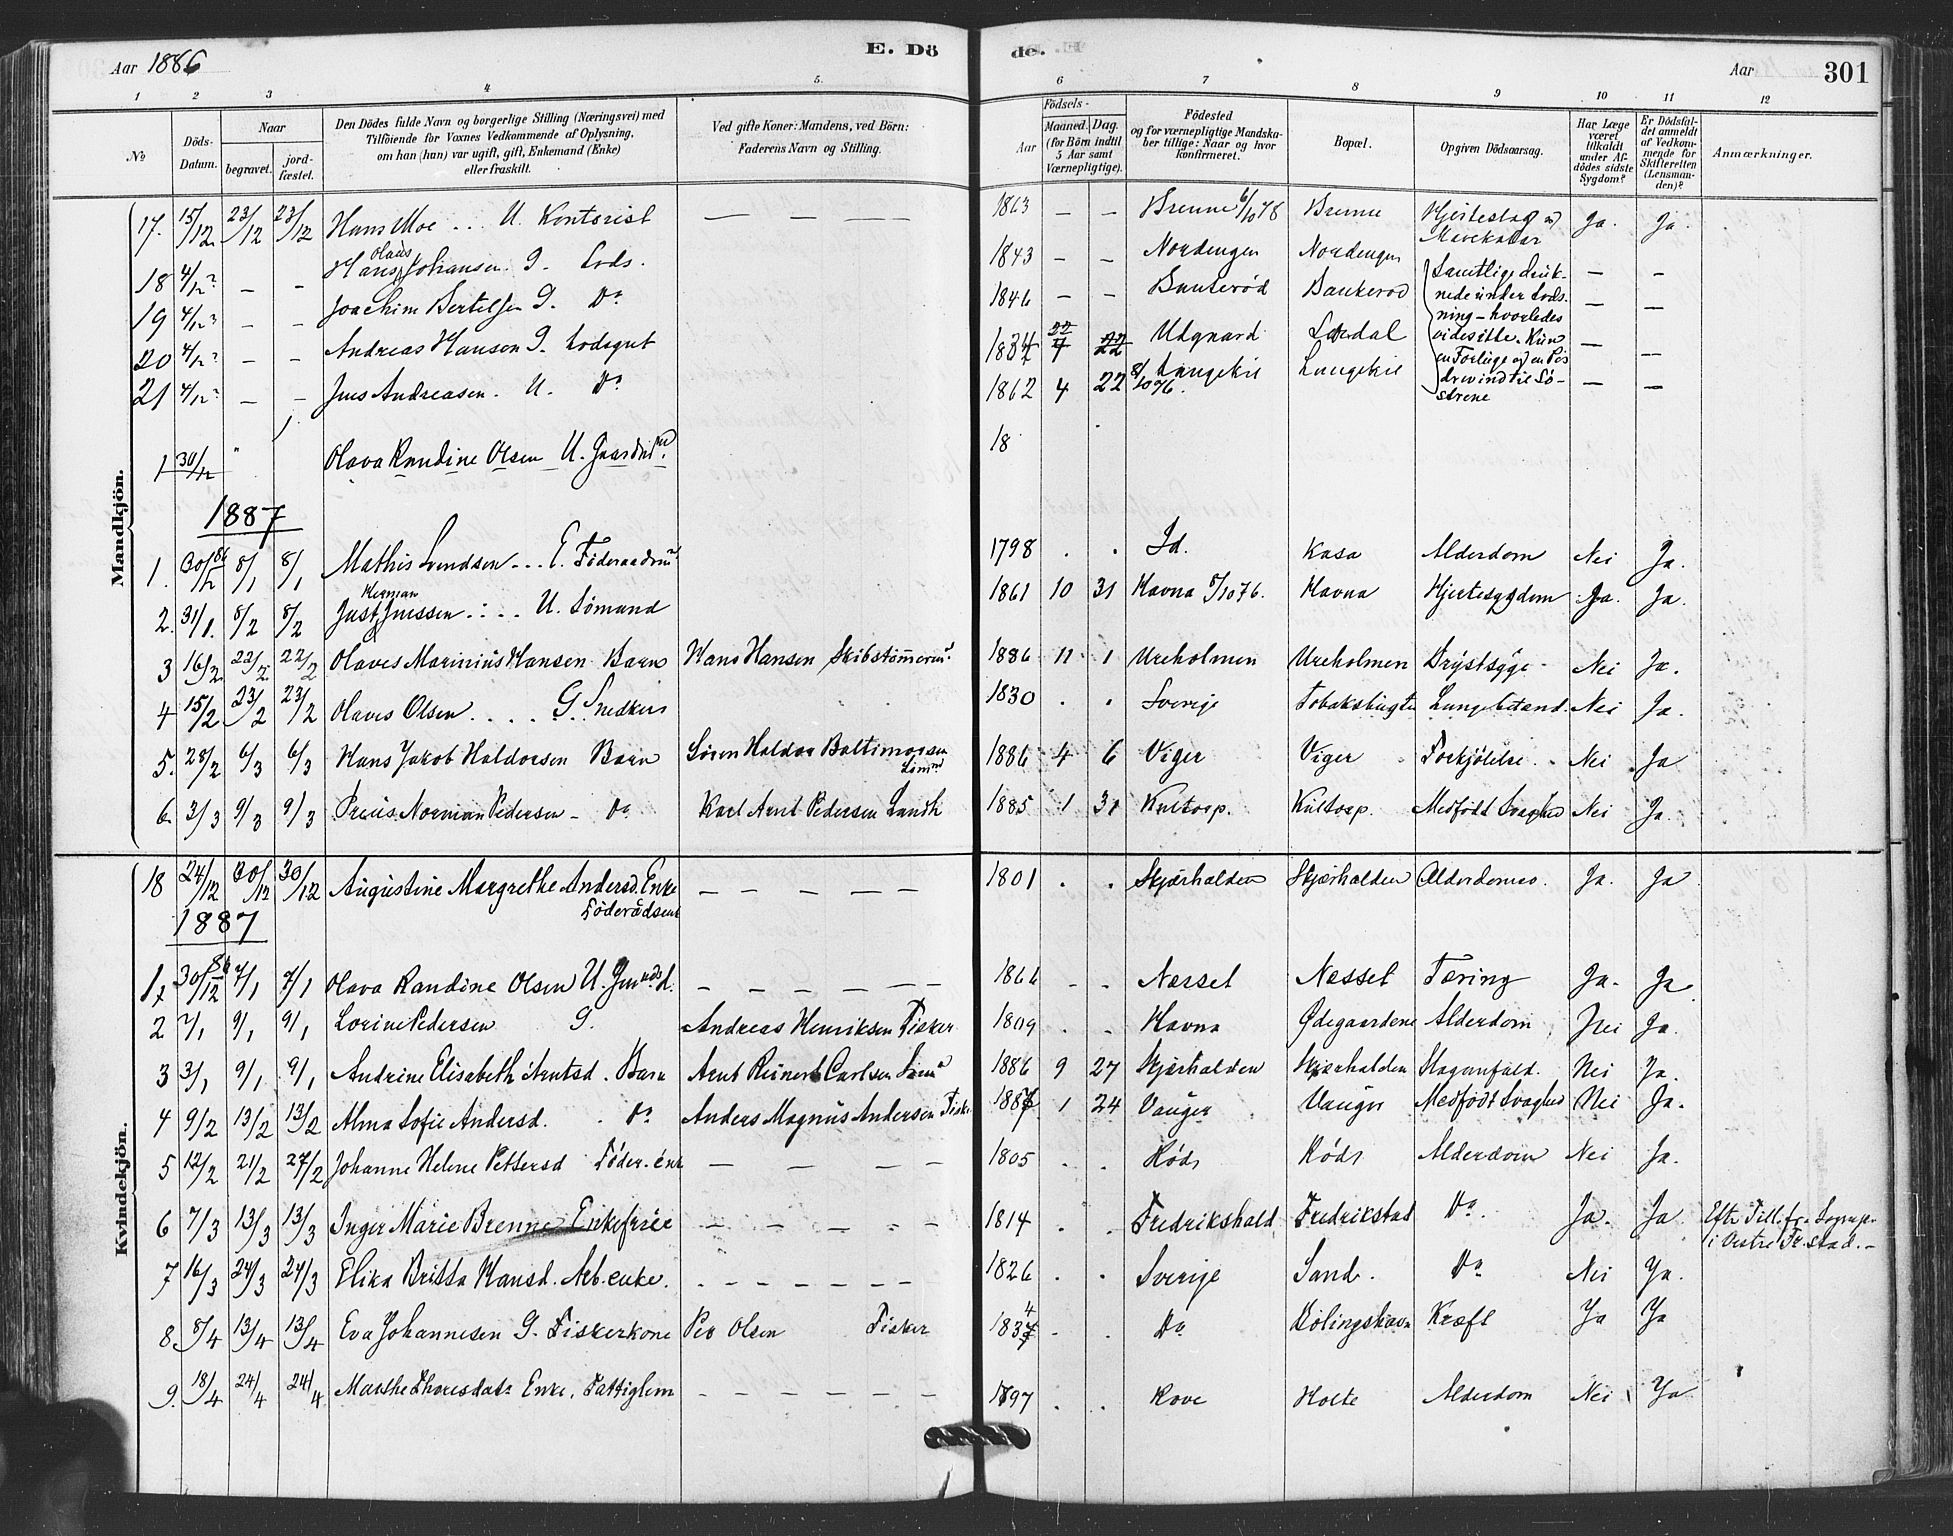 Aar 1886
E. Dö
de.
Aar
301
1 2 3 4 5. 6 7 8 9 10 11 12
No
Döds-Datum.
Naar
begravet.
jord-fæstet.
Den Dödes fulde Navn og borgerlige Stilling (Næringsvei) med
Tilföiende for Voxnes Vedkommende af Oplysning,
om han (hun) var ugift, gift, Enkemand (Enke)
eller fraskilt.
Ved gifte Koner: Mandens, ved Börn:
Faderens Navn og Stilling.
Födsels-
Aar
Maaned. Dag.
(for Börn indtil
5 Aar samt
Værnepligtige).
Födested
og for værnepligtige Mandska-
ber tillige: Naar og hvor
konfirmeret.
Bopæl.
Opgiven Dödsaarsag.
Har Læge
været
tilkaldt
under Af-
dödes sidste
Sygdom?
Er Dödsfal-
det anmeldt
af Vedkom-
mende for
Skifteretten
(Lensman-
den)?
Anmærkninger.
Mandkjön.
17. 15/12 23/12 23/12 Hans Moe ... U. Kontorist — — — 1863 — — Brenne 6/10 78 Brenne Hjerteslag Ja. Ja.
18 4/12? — — Hans Olaus Johansen. G. Lods. 1843 — — Nordengen Nordengen — —
19 4/12? — — Joachim Bertelsen G. Do 1846 — — Bankerød Bankerød — —
20 4/12? — — Andreas Hansen G. Lodsgut 22 Utgaard — —
21 4/12? — — Jens Andreasen. U. Do 1862 4 22 8/10 76. Langekil Langekil — —
Samtlige druk-
nede under Lods-
ning – hvorledes
vides ikke. Kun
drev ind til Sö-
strene
1 30/12 " Olava Randine Olsen U. 18
1887
1. 30/12 86 8/1 8/1 Mathis Svendsen ... E. 1798 . . Id. Kasa Alderdom Nei Ja.
2. 31/1. 8/2 8/2 Just Herman Jnessen ... U. Sömand 1861 10 31 Havna 8/10 76. Havna Hjertesygdom Ja. Ja.
3 16/2 22/2 22/2 Olaves Marinius Hansen Barn Hans Hansen 1886 11 1 Ureholmen Ureholmen Brystsyge Nei Ja.
4 15/2 23/2 23/2 Olaves Olsen .... G. Snedker 1830 . . Sverige Nei Ja.
5. 28/2 6/3 6/3 Hans Jakob Haldorsen Barn Sören Haldor Baltimorsen Sömnd 1886 4 6 Viger Viger Forkjölelse Nei Ja
6. 3/3 9/3 9/3 Norman Pedersen – Do Karl Arnt Pedersen Landh 1885 1 31 Kultorp. Kultorp. Medfödt Svaghed Nei Ja.
Kvindekjön.
18 24/12 30/12 30/12 Augustine Margrethe Andersd. Enke — — — — — 1801 . . Skjærhalden Skjærhalden Ja. Ja
1887
1. 30/12 86 7/1 7/1 Olava Randine Olsen U. — — — — — — 1866 – – Næsset Næsset Tæring Ja. Ja
2 2/1 9/1 9/1 Lorine Pedersen G. Andreas Henriksen Fisker 1809 . . Havna Ødegaardene Alderdom Nei Ja.
3 3/1 9/1 9/1 Andrine Elisabeth Arntsd. Barn Arnt Reinert Carlsen 1886 9 27 Skjærhalden Skjærhalden Slaganfald. Nei Ja.
4 9/2 13/2 13/2 Alma Sofie Andersd. Do Anders Magnus Andersen Fisker 1887 1 24 Vauger Vauger Medfödt Svaghed Nei Ja.
5 12/2 21/2 27/2 Johanne Helene Pettersd Föder. enk — — — — 1805 . . Röds Röds Alderdom Nei Ja.
6 7/3 13/3 13/3 Inger Marie Brenne Enkefrue — — — — — 1814 . . Fredrikshald Fredrikstad Do. Ja. Ja
i Vestre Fr.stad. –
7 16/3 24/3 24/3 Elika Britta Hansd. Arb. enke. – – – – – – 1826 . . Sverige Sand. Do Nei Ja.
8. 8/4 13/4 13/4 Eva Johannesen G. Fiskerkone Per Olsen Fisker 1834 . . Do Kræft Ja Ja
9. 18/4 24/4 24/4 Marthe Thoresdatr Enke. Fattiglem – – – – – – 1797 . . Rove Holte Alderdom Nei Ja